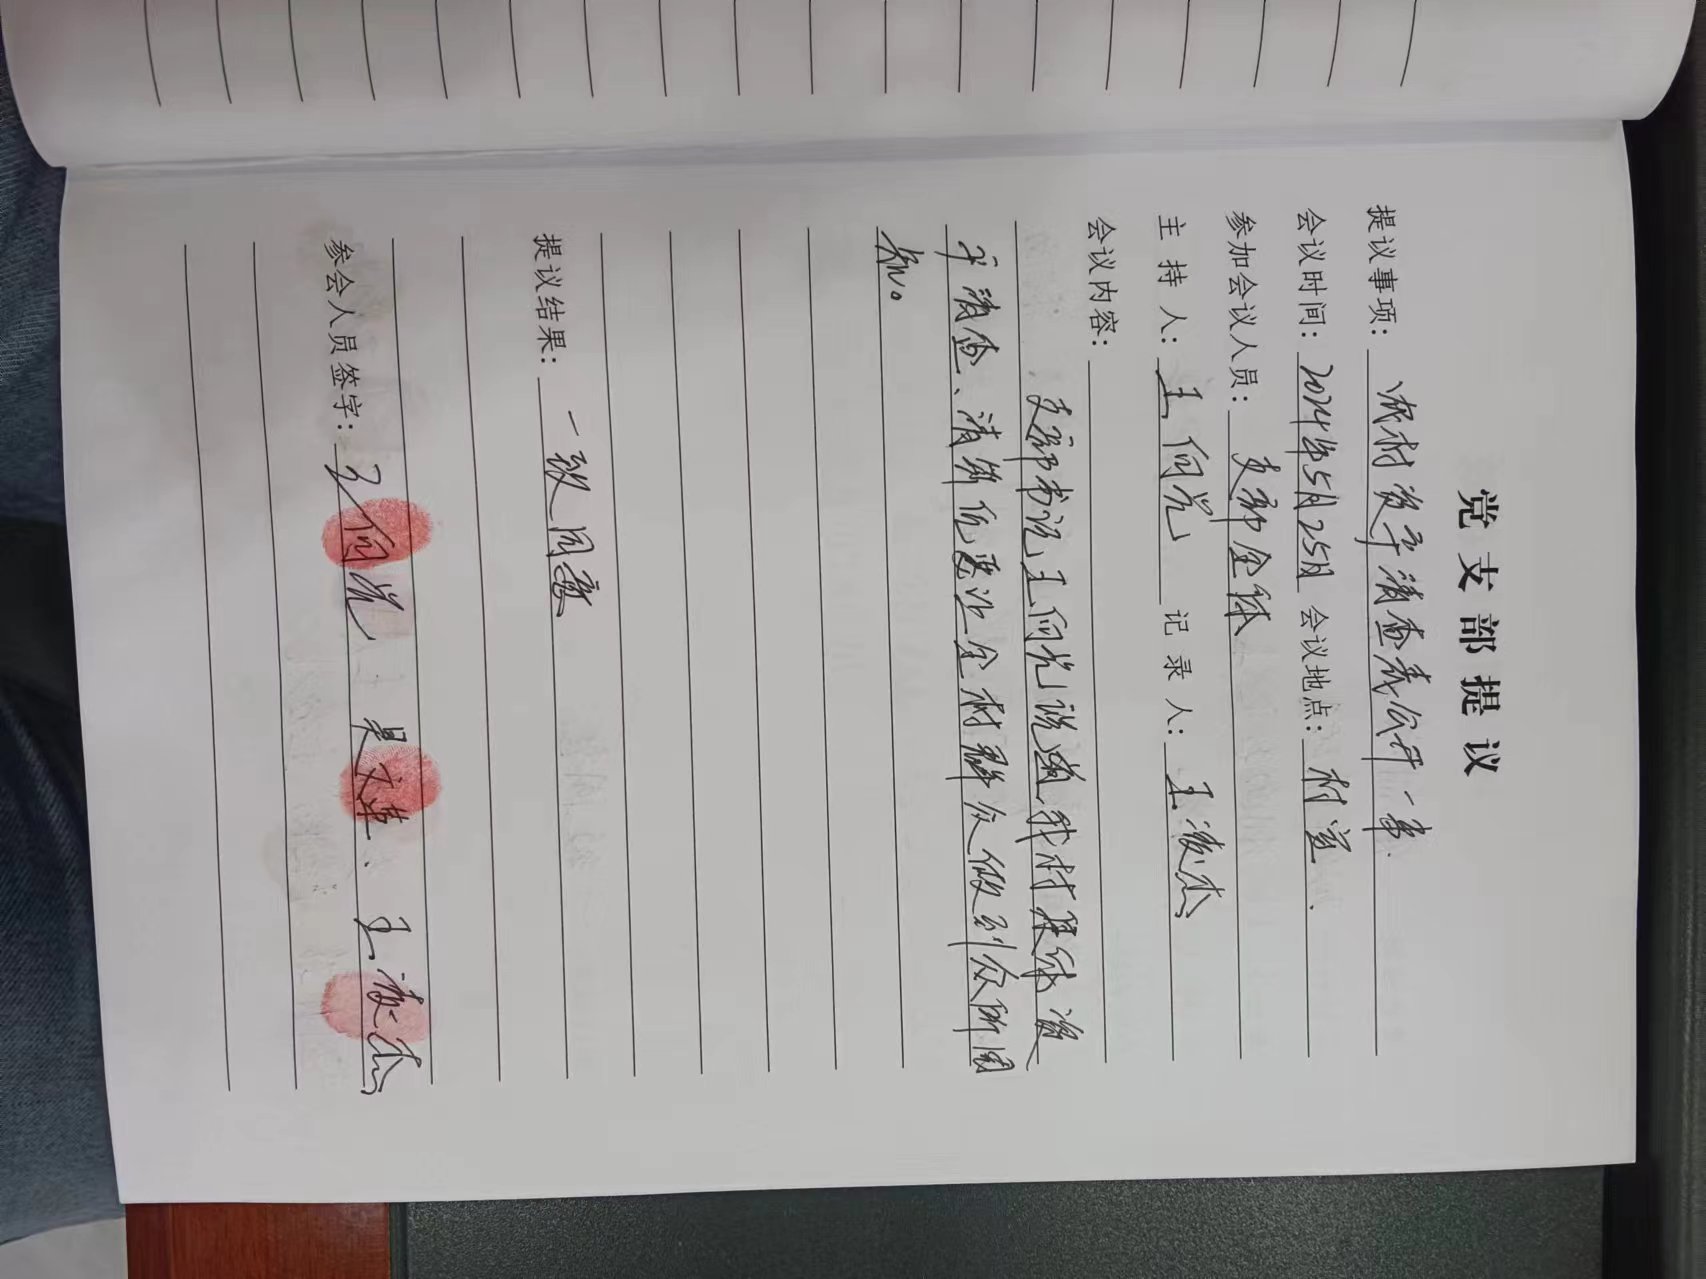 党支部提议
提议事项：我村资产清查表公开一事.
会议时间：2024年5月25日 会议地点：村室.
参加会议人员：支部全体
主持人：王向光 记录人：王凌杰
会议内容：
支部书记王向光说道，我村集体资
产清查、清册优 让全村群众做到众所周
知。
提议结果：一致同意
参会人员签字：王向光、吴文革、王凌杰